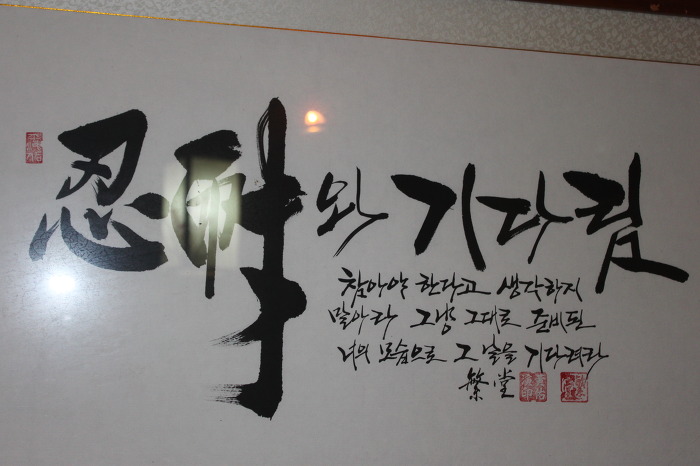 忍耐와 기다림
참아야 한다고 생각하지
말아라 그냥 그대로 준비된
너의 모습으로 그 날을 기다려라
繁堂